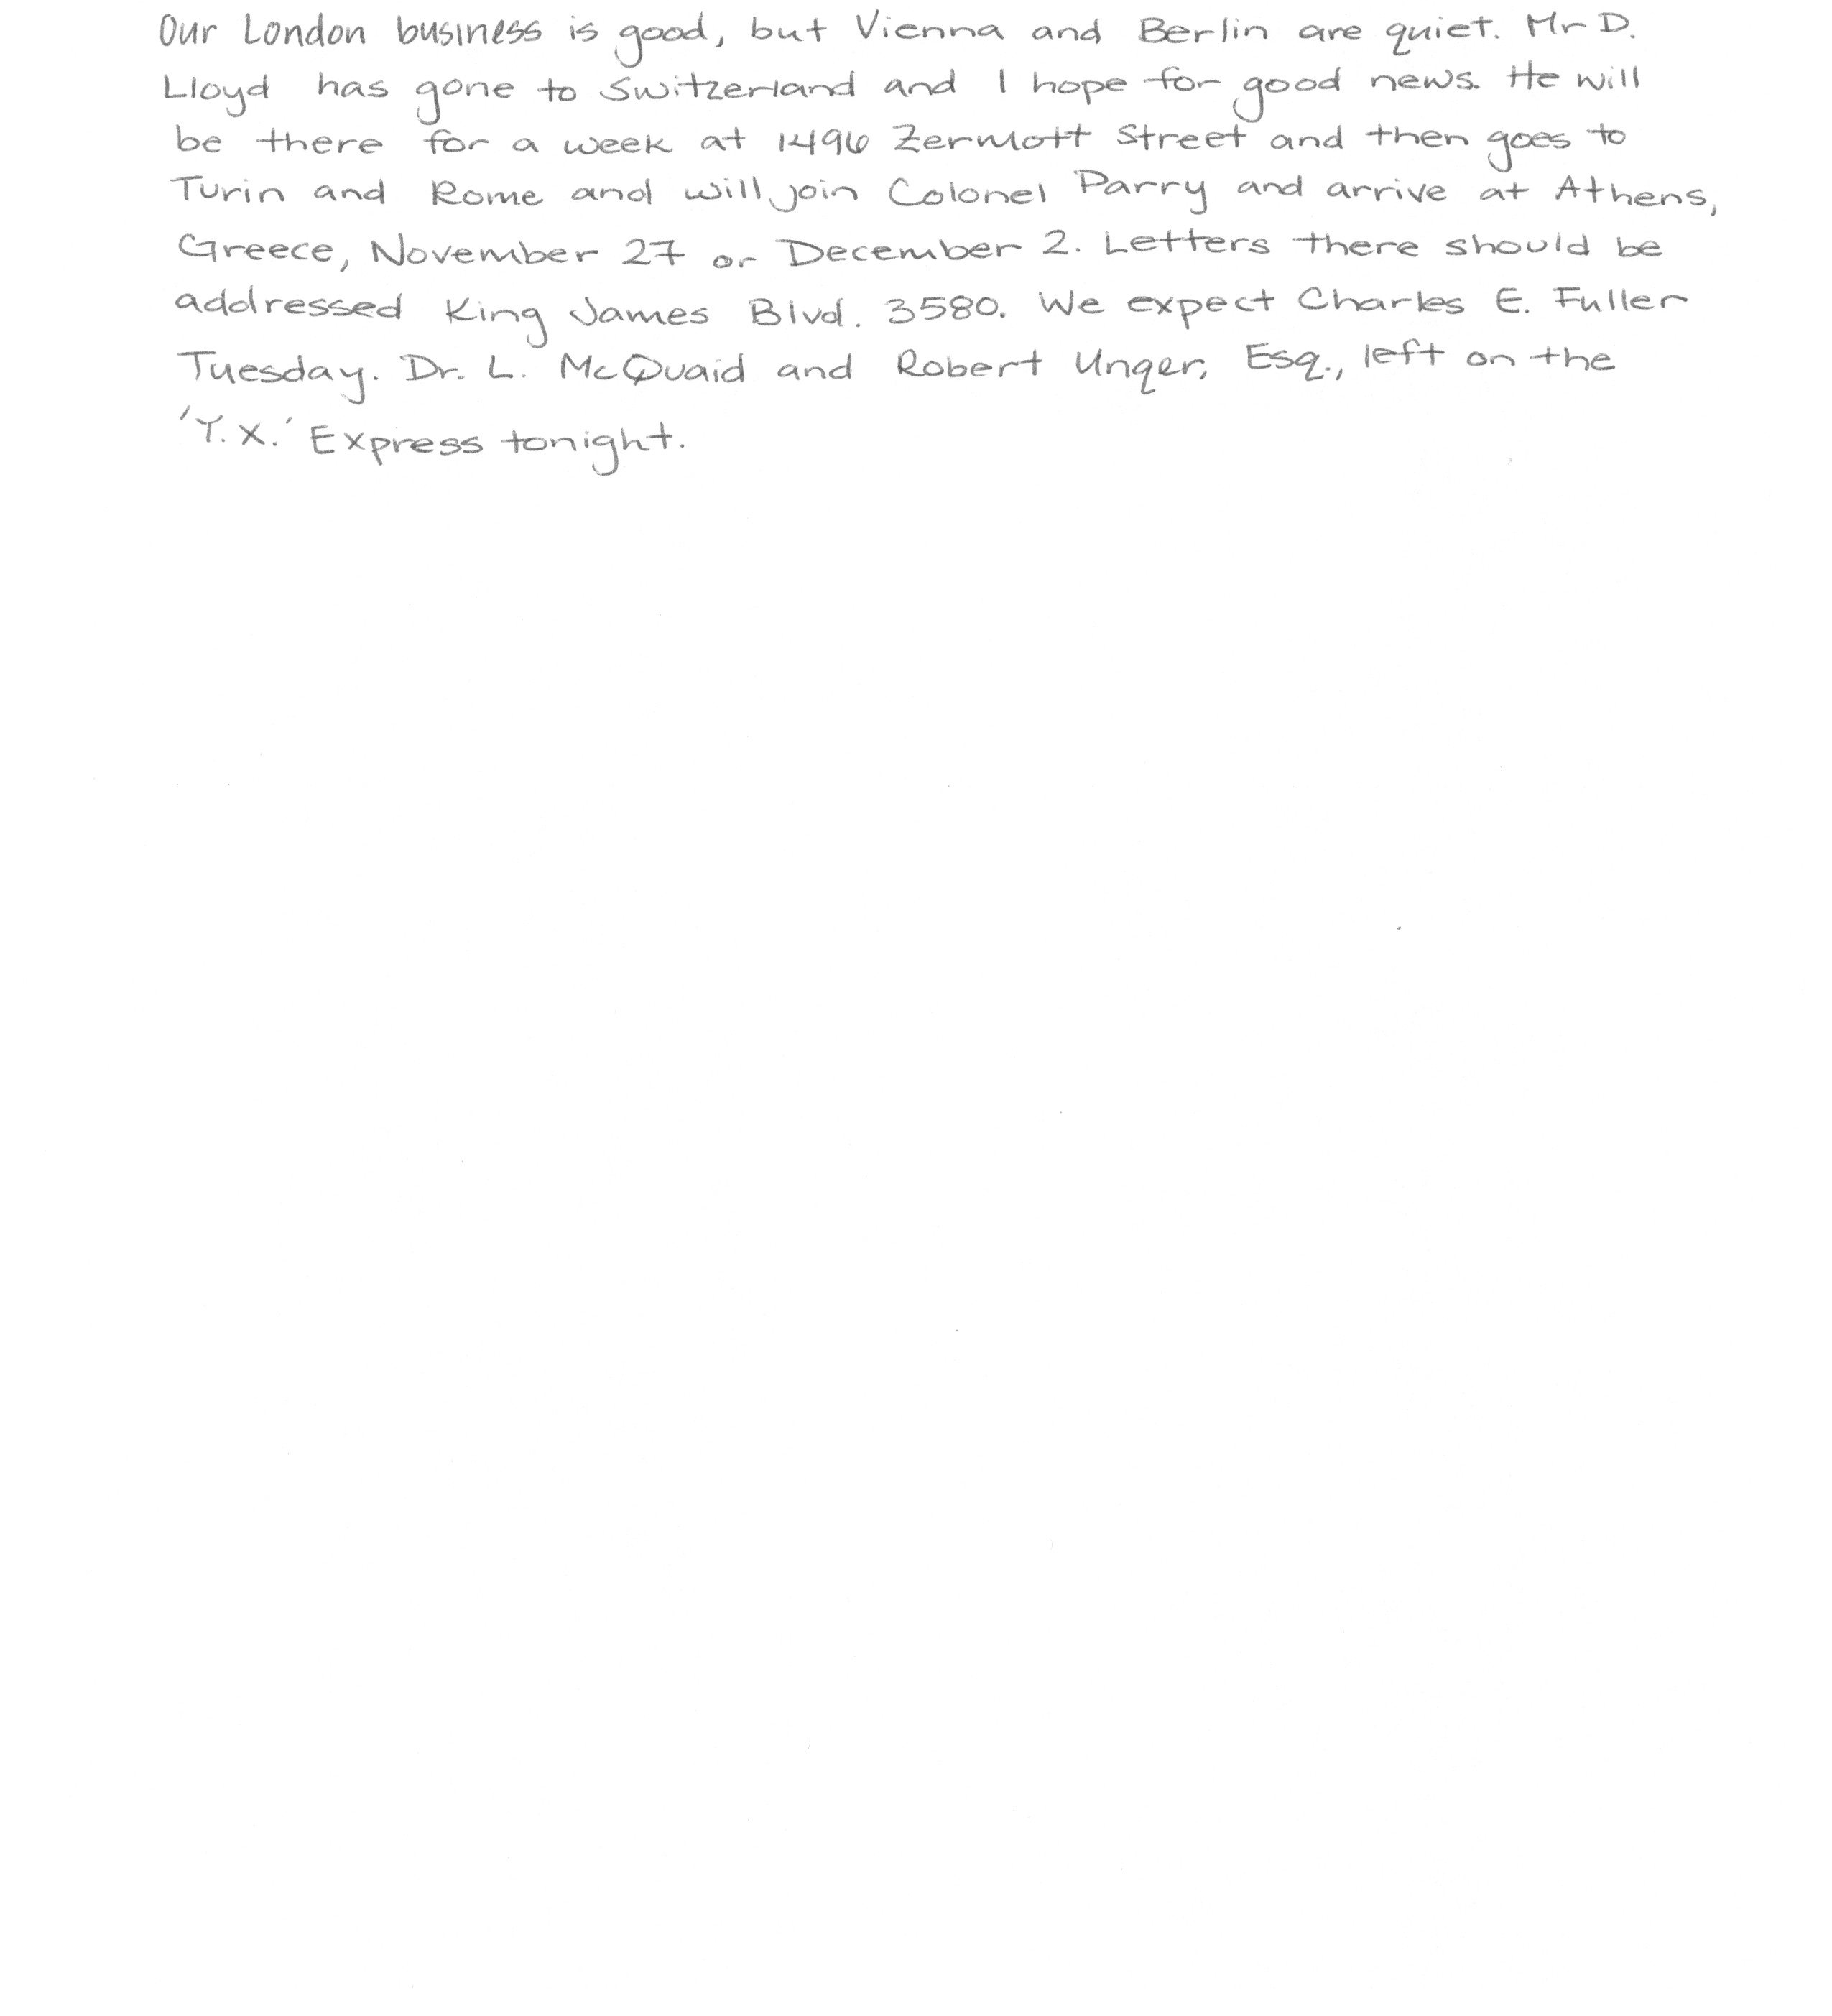 Our London business is good, but Vienna and Berlin are quiet. Mr D.
Lloyd has gone to Switzerland and I hope for good news. He will
be there for a week at 1496 Zermott Street and then goes to
Turin and Rome and will join Colonel Parry and arrive at Athens,
Greece, November 27 or December 2. Letters there should be
addressed King James Blvd. 3580. We expect Charles E. Fuller
Tuesday. Dr. L. McQuaid and Robert Unger, Esq., left on the
'Y.X.' Express tonight.